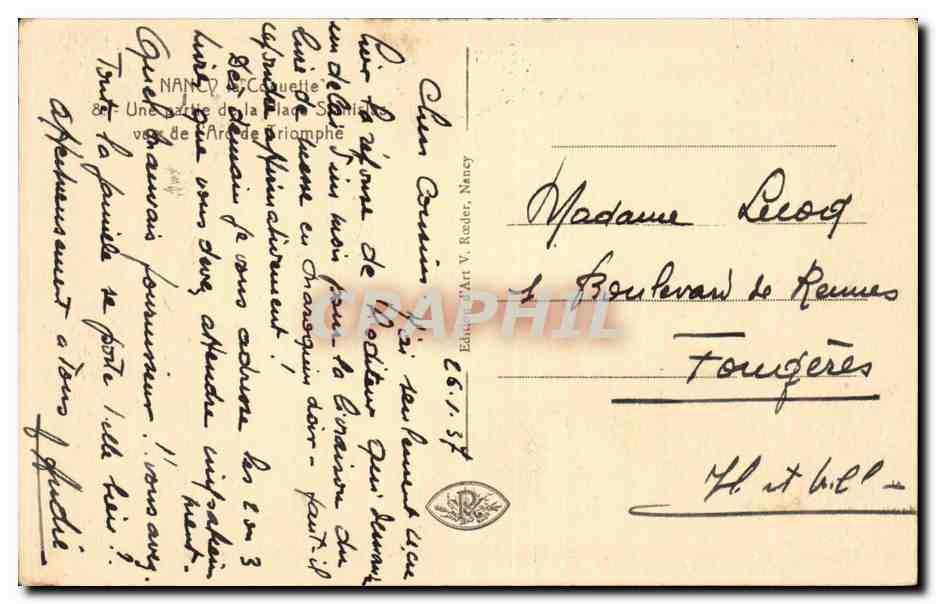 NANCY la Coquette
8. - Une partie de la Place Stanislas
vers de l'Arc de Triomphe
26.1.37
Chers Cousins, J'ai seulement reçu
hier la réponse de l'éditeur qui demande
un délai d'un mois pour la livraison du
livre de messe en maroquin noir - faut-il
répondre affirmativement !
Dès demain je vous adresse les 2 ou 3
livres que vous devez attendre impatiem
ment.
Quel mauvais fournisseur ! vous avez.
Toute la famille se porte t'elle bien ?
affectueusement à tous
André
Edition d'Art V. Rœder, Nancy
Madame Lecoq
1 Boulevard de Rennes
Fougères
Il et Vil -
CPAPHIL